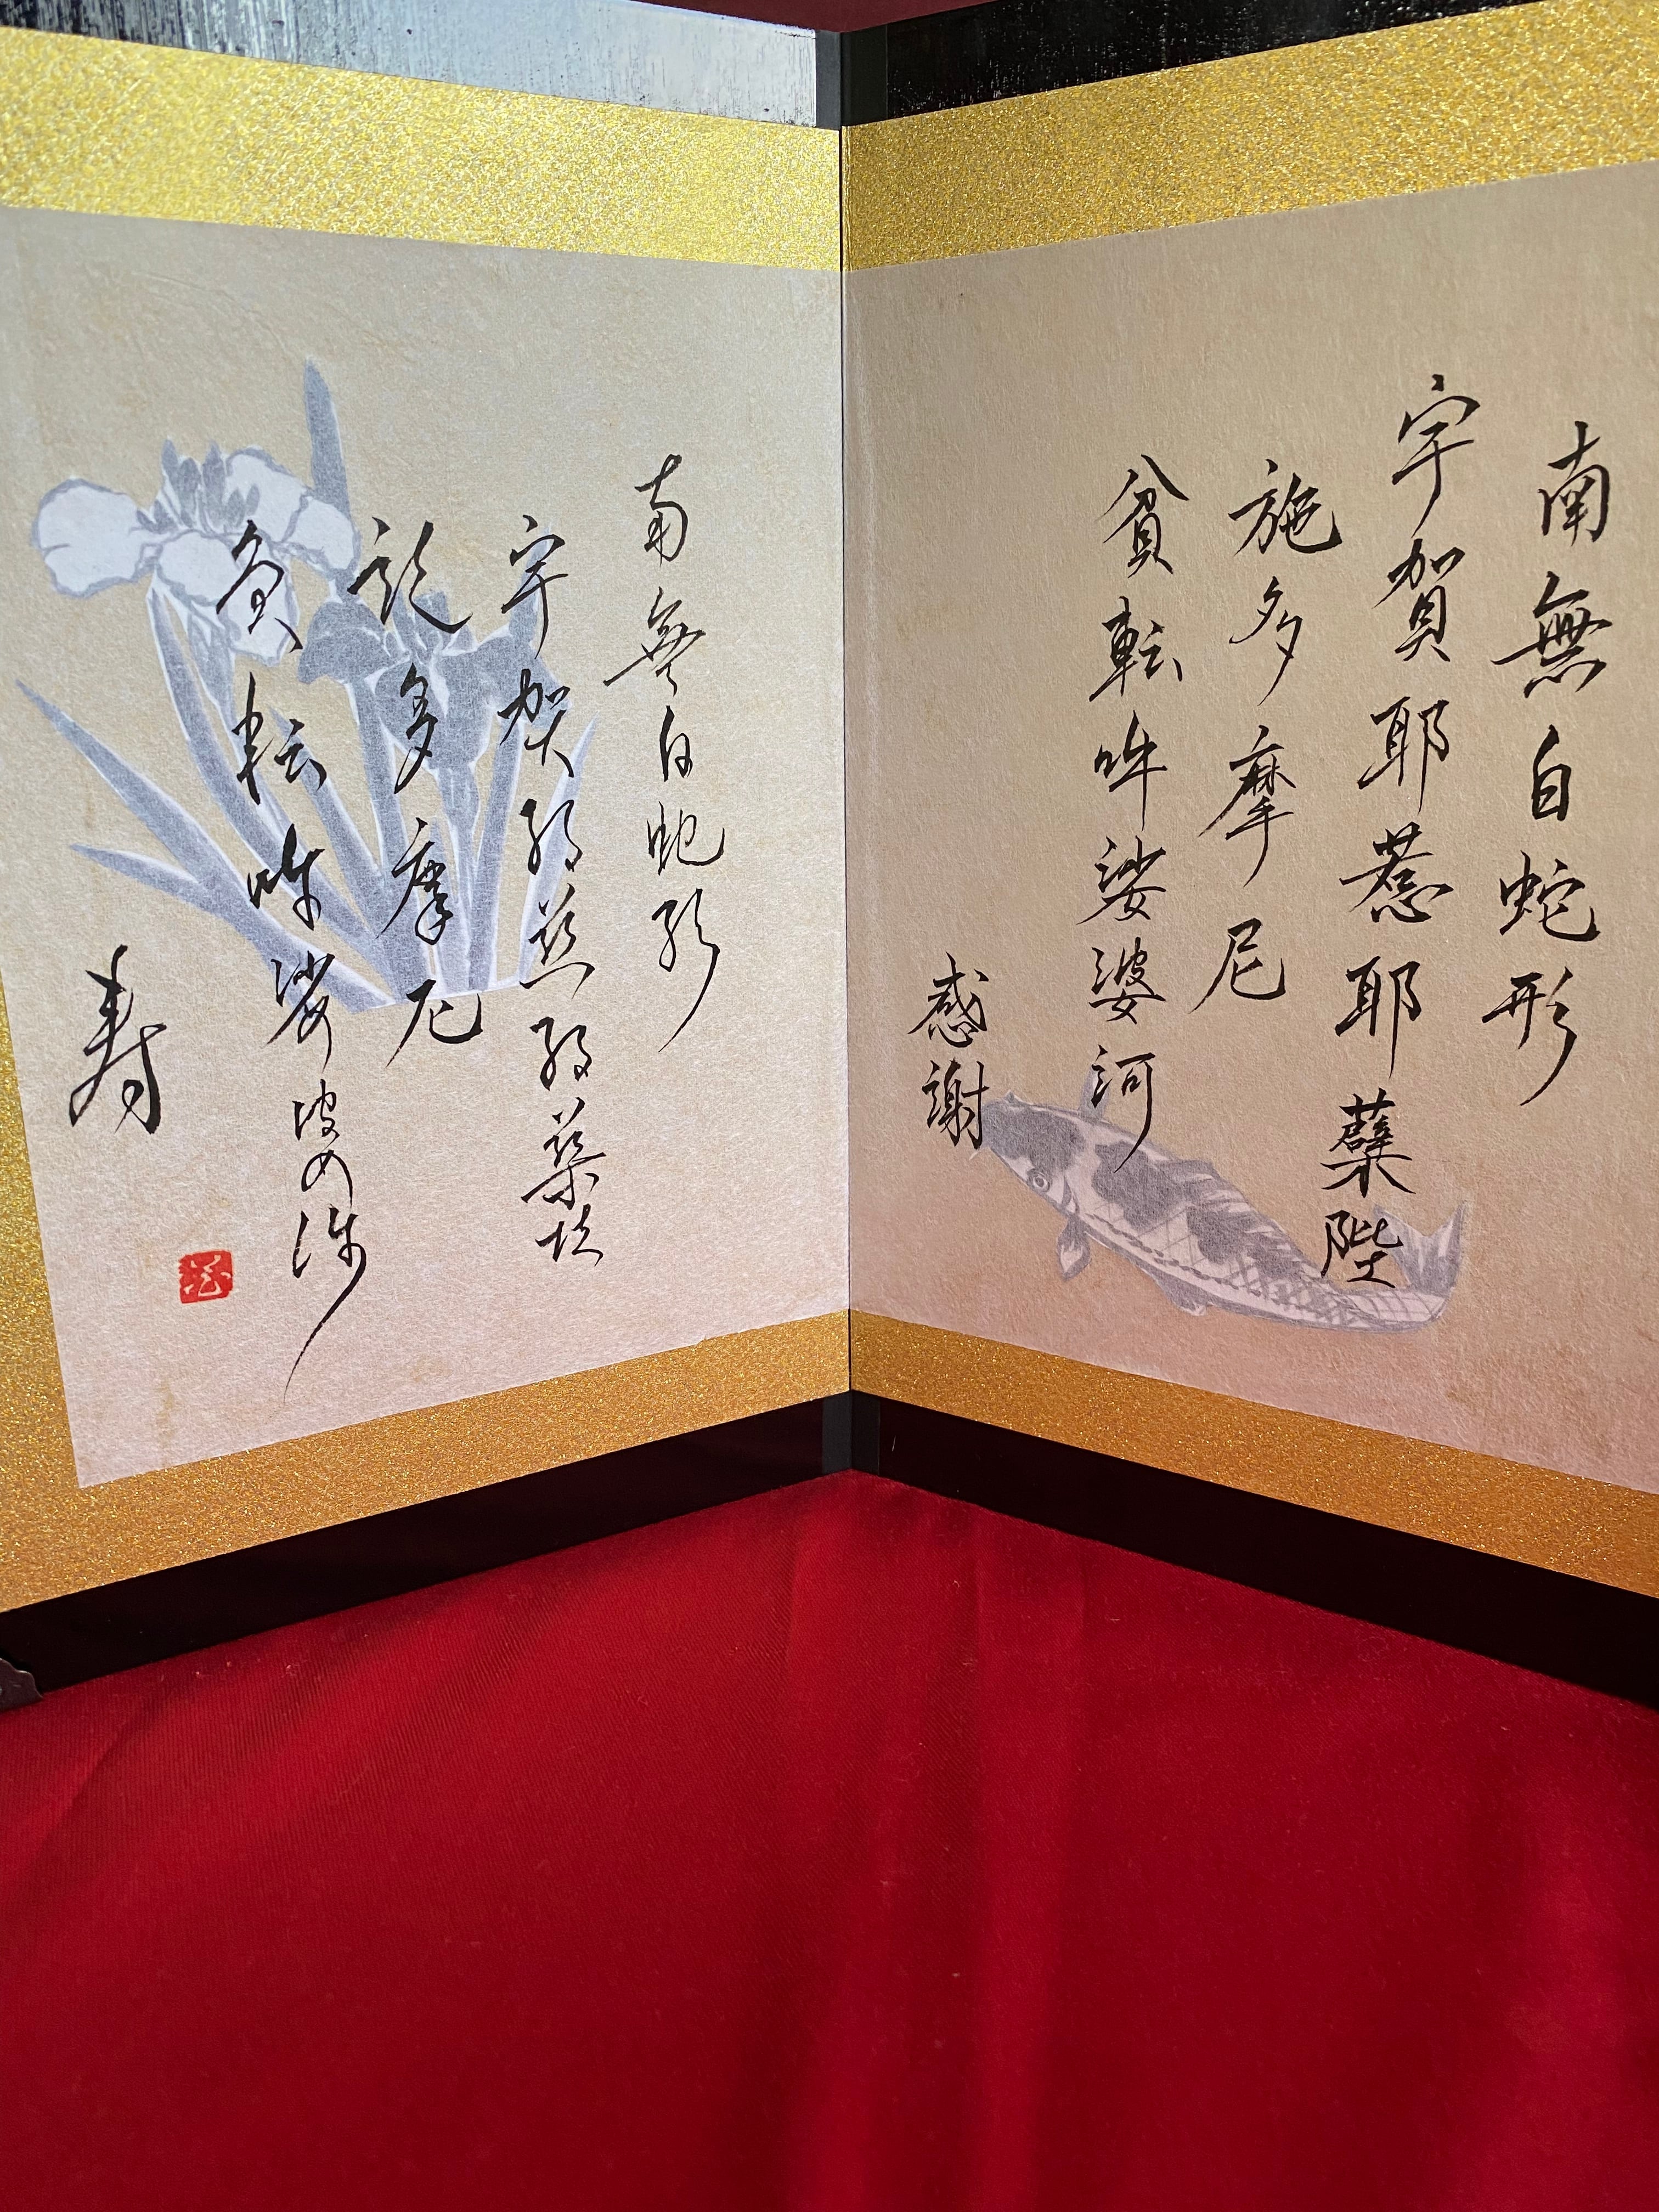 南無白蛇形
宇賀耶惹耶蘖陛
施多摩尼
貧転吽娑婆河
感謝
南無白蛇形
宇賀耶惹耶蘖
多摩尼
貧転吽娑婆
寿